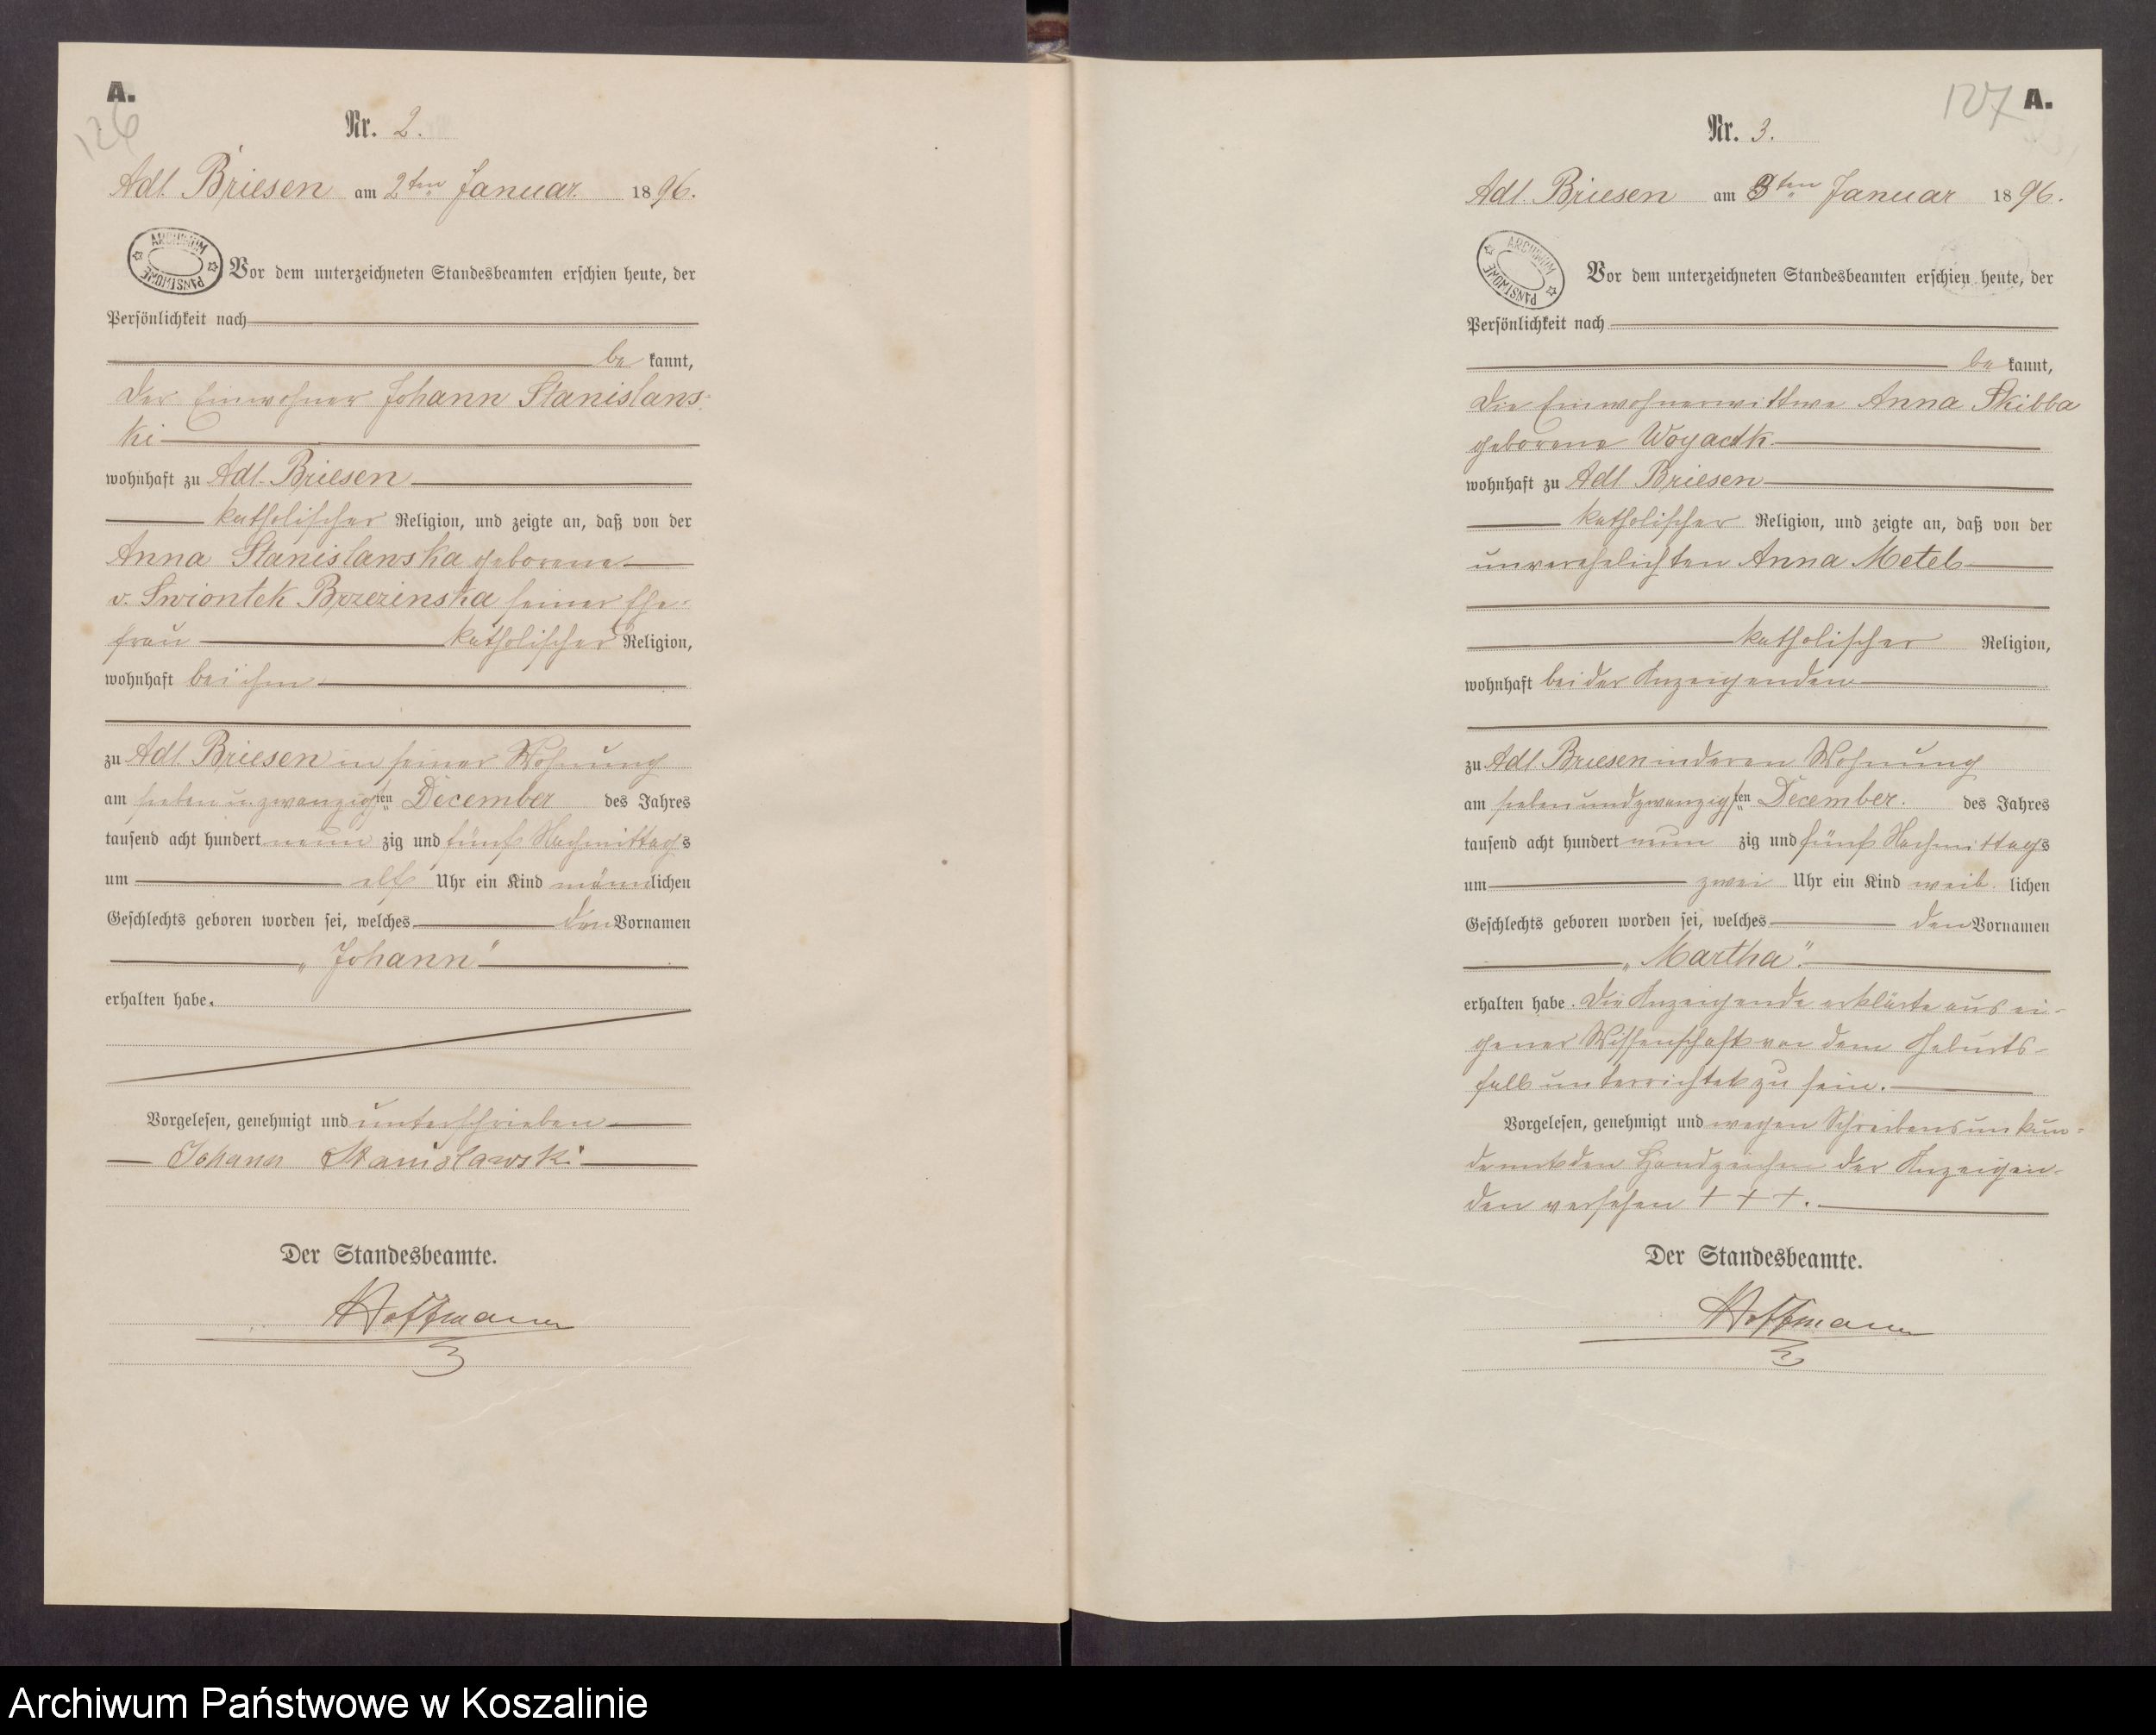 A.
126
Nr. 2.
Adl. Briesen am 2ten Januar 1896.
ARCHIWUM PAŃSTWOWE
Vor dem unterzeichneten Standesbeamten erschien heute, der
Persönlichkeit nach
be kannt,
der Einwohner Johann Stanislaws-
ki
wohnhaft zu Adl. Briesen
katholischer Religion, und zeigte an, daß von der
Anna Stanislawska geborene
v. Swiontek Brzezinska seiner Ehe-
frau katholischer Religion,
wohnhaft bei ihm
zu Adl. Briesen in seiner Wohnung
am sieben u. zwanzigsten December des Jahres
tausend acht hundert neun zig und fünf Nachmittags
um elf Uhr ein Kind männlichen
Geschlechts geboren worden sei, welches den Vornamen
„Johann“
erhalten habe.
Vorgelesen, genehmigt und unterschrieben
Johann Stanislawski
Der Standesbeamte.
Hoffmann
127 A.
Nr. 3.
Adl. Briesen am 3ten Januar 1896.
ARCHIWUM PAŃSTWOWE
Vor dem unterzeichneten Standesbeamten erschien heute, der
Persönlichkeit nach
be kannt,
die Einwohnerwittwe Anna Skibba
geborene
wohnhaft zu Adl. Briesen
katholischer Religion, und zeigte an, daß von der
unverehelichten Anna Metel
katholischer Religion,
wohnhaft bei der Anzeigenden
zu Adl. Briesen in deren Wohnung
am sieben und zwanzigsten December. des Jahres
tausend acht hundert neun zig und fünf Nachmittags
um zwei Uhr ein Kind weib lichen
Geschlechts geboren worden sei, welches den Vornamen
„Martha“.
erhalten habe. Die Anzeigende erklärte aus ei-
gener Wissenschaft von dem Geburts-
fall unterrichtet zu sein.
Vorgelesen, genehmigt und wegen Schreibensunkun-
de mit den Handzeichen der Anzeigen-
den versehen + + +.
Der Standesbeamte.
Hoffmann
Archiwum Państwowe w Koszalinie